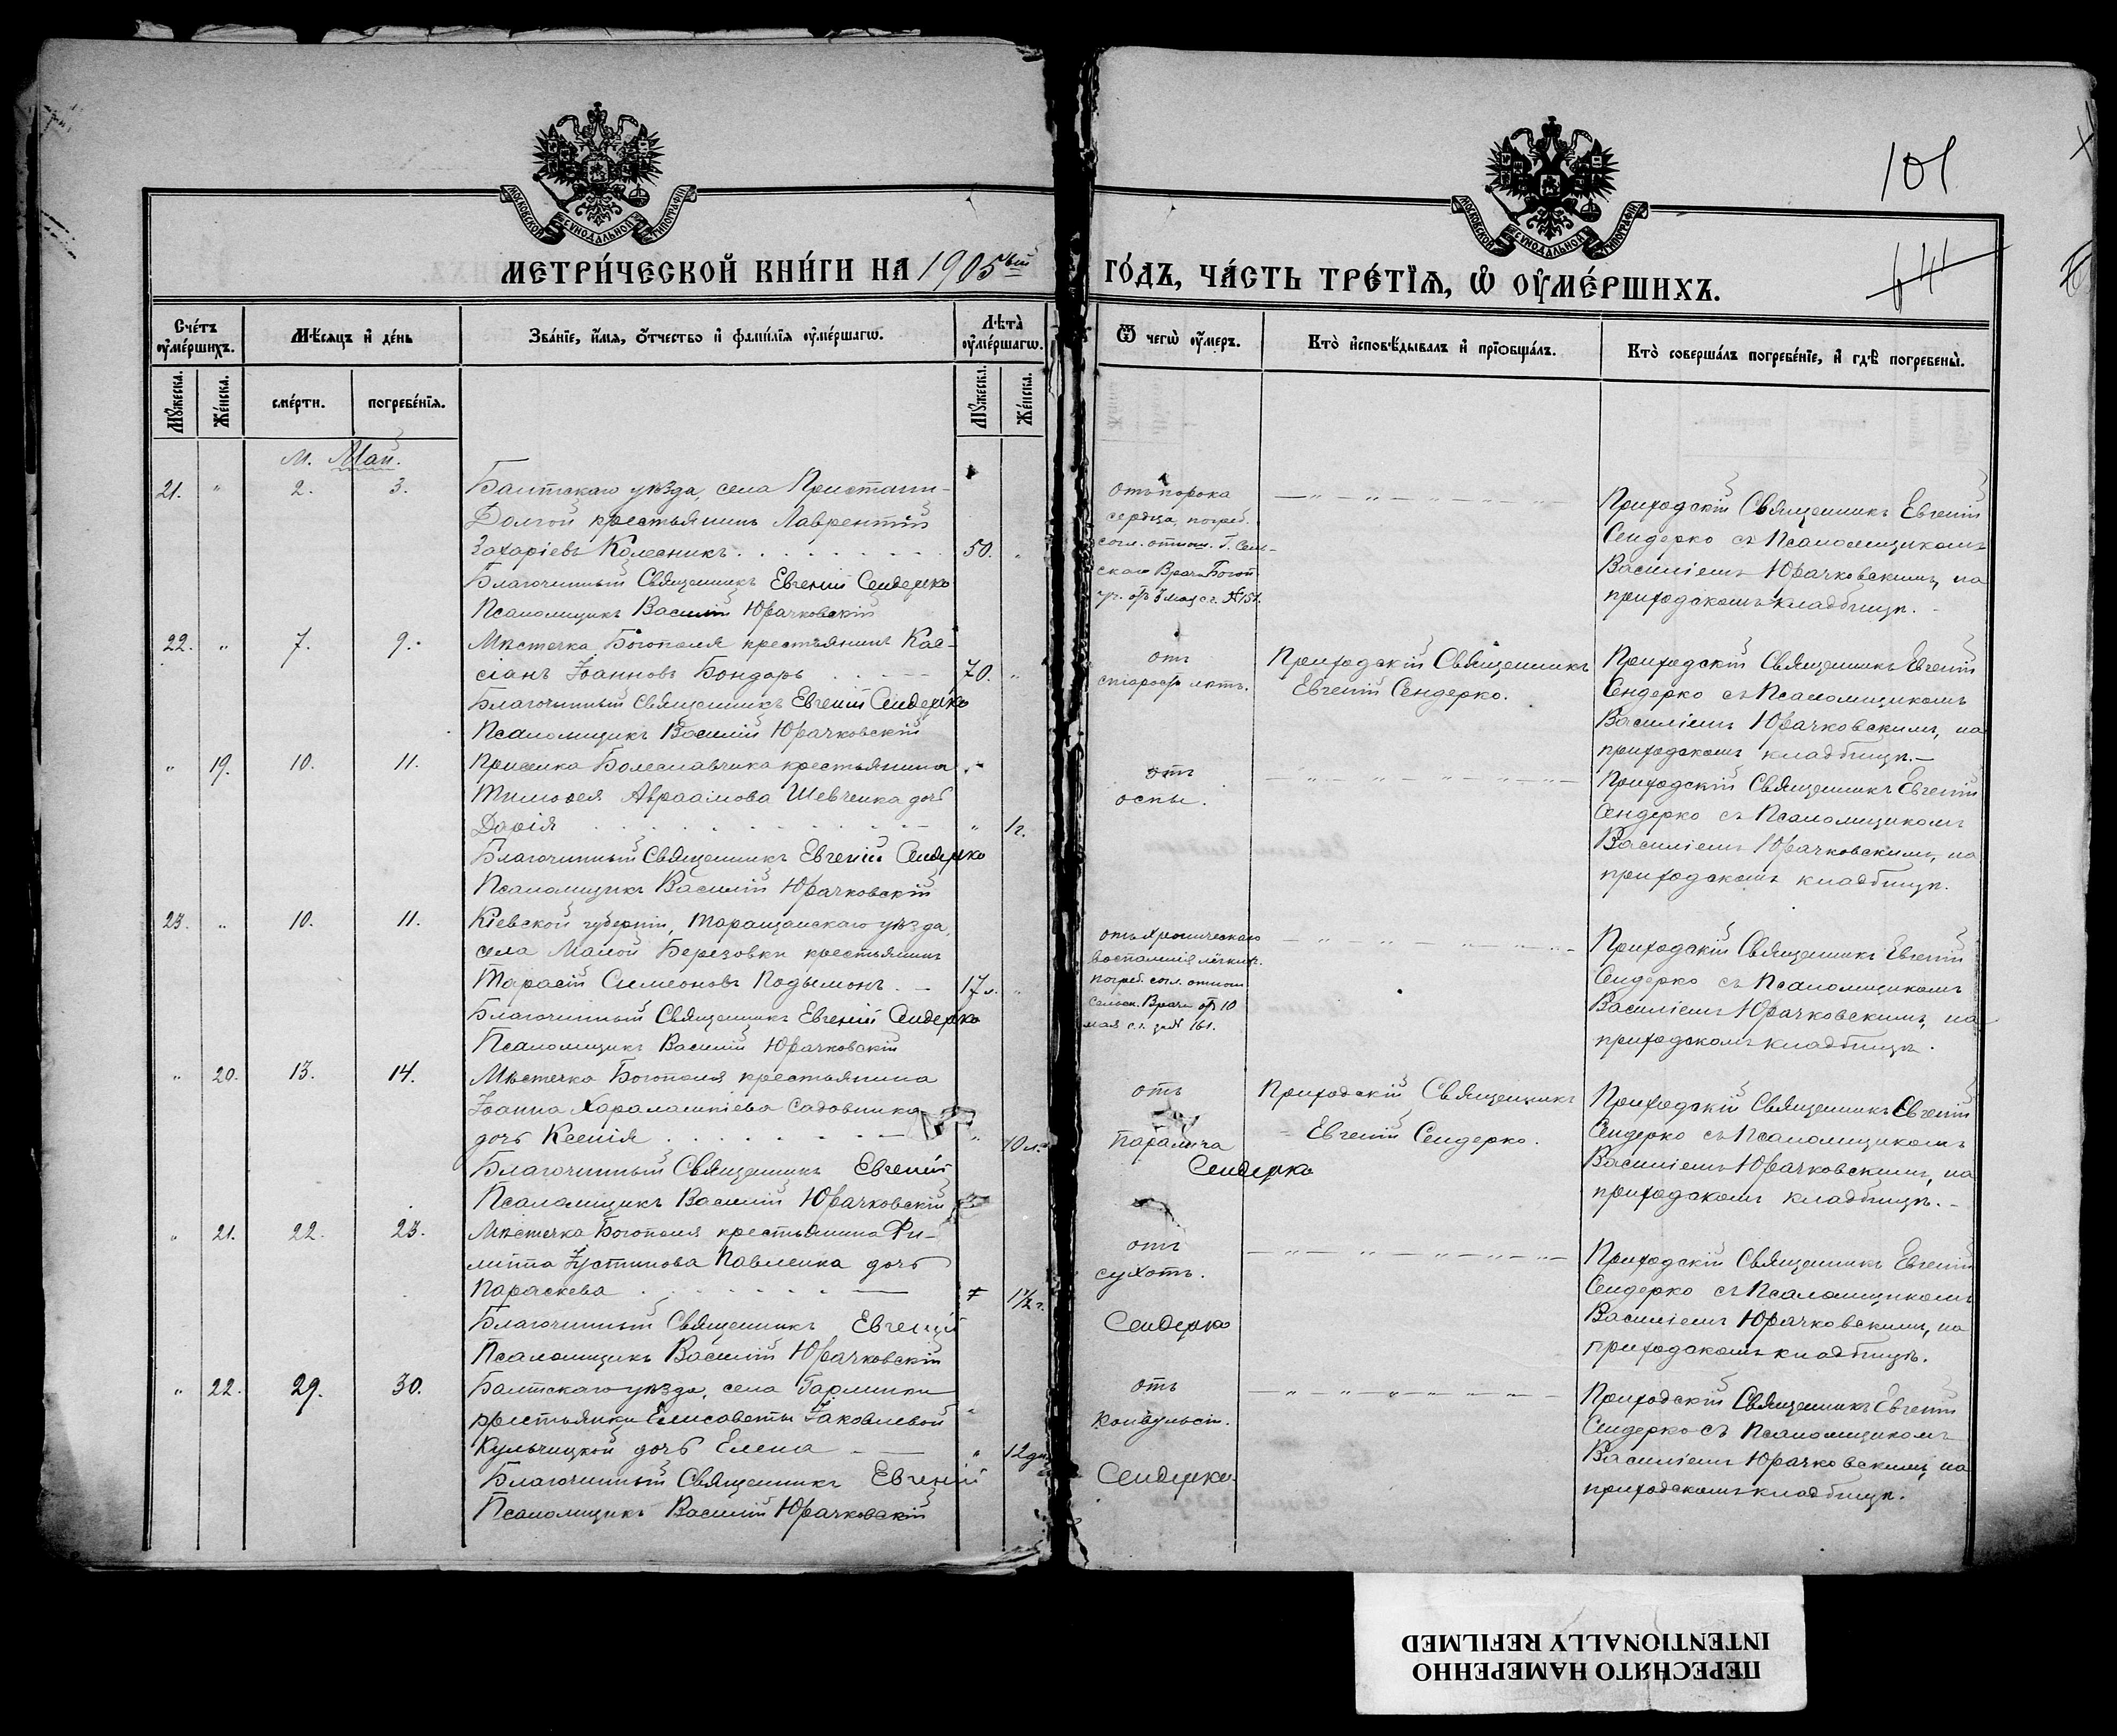 МОСКОВСКОЙ СѴНОДАЛЬНОЙ ТИПОГРАФІИ
МОСКОВСКОЙ СѴНОДАЛЬНОЙ ТИПОГРАФІИ
101
641
МЕТРИ́ЧЕСКОЙ КНИ́ГИ НА 1905ый
ГО́ДЪ, ЧА́СТЬ ТРЕ́ТІѦ, Ѡ ОУМЕ́РШИХЪ.
Сче́тъ оуме́ршихъ.
Мѣ́сяцъ и де́нь
Зва́ніе, и́мя, о́тчество и фами́лія оуме́ршагѡ.
Лѣта̀ оуме́ршагѡ.
Ѿ чегѡ̀ оу́меръ.
Кто̀ исповѣ́дывалъ и пріобща́лъ.
Кто̀ соверша́лъ погребе́ніе, и гдѣ̀ погребены̀.
Мꙋ́жеска.
Же́нска.
сме́рти.
погребе́нія.
Мꙋ́жеска.
Же́нска.
м. Май.
21. " 2. 3. Балтскаго уѣзда, села Пристани-
Долгой крестьянинъ Лаврентій
Захаріевъ Колесникъ. 50. "
Благочинный Священникъ Евгеній Сендерко
Псаломщикъ Василій Юрачковскій
отъ порока
сердца, погреб.
согл. отнош. Г. Сель-
скаго Врача Богоп.
отъ 3 мая с. г. № 151.
Приходскій Священникъ Евгеній
Сендерко съ Псаломщикомъ
Василіемъ Юрачковскимъ, на
приходскомъ кладбищѣ.
22. " 7. 9. Мѣстечка Богополя крестьянинъ Кас-
сіанъ Іоанновъ Бондарь 70. "
Благочинный Священникъ Евгеній Сендерко
Псаломщикъ Василій Юрачковскій
отъ
старости лѣтъ.
Приходскій Священникъ
Евгеній Сендерко.
Приходскій Священникъ Евгеній
Сендерко съ Псаломщикомъ
Василіемъ Юрачковскимъ, на
приходскомъ кладбищѣ.
" 19. 10. 11. Приселка Болеславчика крестьянина
Тимоѳея Авраамова Шевченка дочь
Дарія " 1 г.
Благочинный Священникъ Евгеній Сендерко
Псаломщикъ Василій Юрачковскій
отъ
оспы.
Приходскій Священникъ Евгеній
Сендерко съ Псаломщикомъ
Василіемъ Юрачковскимъ, на
приходскомъ кладбищѣ.
23. " 10. 11. Кіевской губерніи, Таращанскаго уѣзда,
села Малой Березовки крестьянинъ
Тарасій Симеоновъ Подымонъ. 17 л. "
Благочинный Священникъ Евгеній Сендерко
Псаломщикъ Василій Юрачковскій
отъ хроническаго
воспаленія легкихъ.
погреб. согл. отнош.
Сельск. Врача отъ 10
мая с. г. за № 161.
Приходскій Священникъ Евгеній
Сендерко съ Псаломщикомъ
Василіемъ Юрачковскимъ, на
приходскомъ кладбищѣ.
" 20. 13. 14. Мѣстечка Богополя крестьянина
Іоанна Харалампіева Садовника
дочь Ксенія " 10 л.
Благочинный Священникъ Евгеній
Псаломщикъ Василій Юрачковскій
отъ
паралича
Сендерко
Приходскій Священникъ
Евгеній Сендерко.
Приходскій Священникъ Евгеній
Сендерко съ Псаломщикомъ
Василіемъ Юрачковскимъ, на
приходскомъ кладбищѣ.
" 21. 22. 23. Мѣстечка Богополя крестьянина Фи-
липпа Іустинова Павленка дочь
Параскева 1 1/2 г.
Благочинный Священникъ Евгеній
Псаломщикъ Василій Юрачковскій
отъ
сухотъ.
Сендерко
Приходскій Священникъ Евгеній
Сендерко съ Псаломщикомъ
Василіемъ Юрачковскимъ, на
приходскомъ кладбищѣ.
" 22. 29. 30. Балтскаго уѣзда, села
крестьянки Елисаветы Іаковлевой
Кульчицкой дочь Елена " 12 дн.
Благочинный Священникъ Евгеній
Псаломщикъ Василій Юрачковскій
отъ
конвульсіи.
Сендерко
Приходскій Священникъ Евгеній
Сендерко съ Псаломщикомъ
Василіемъ Юрачковскимъ, на
приходскомъ кладбищѣ.
ПЕРЕСНЯТО НАМЕРЕННО
INTENTIONALLY REFILMED